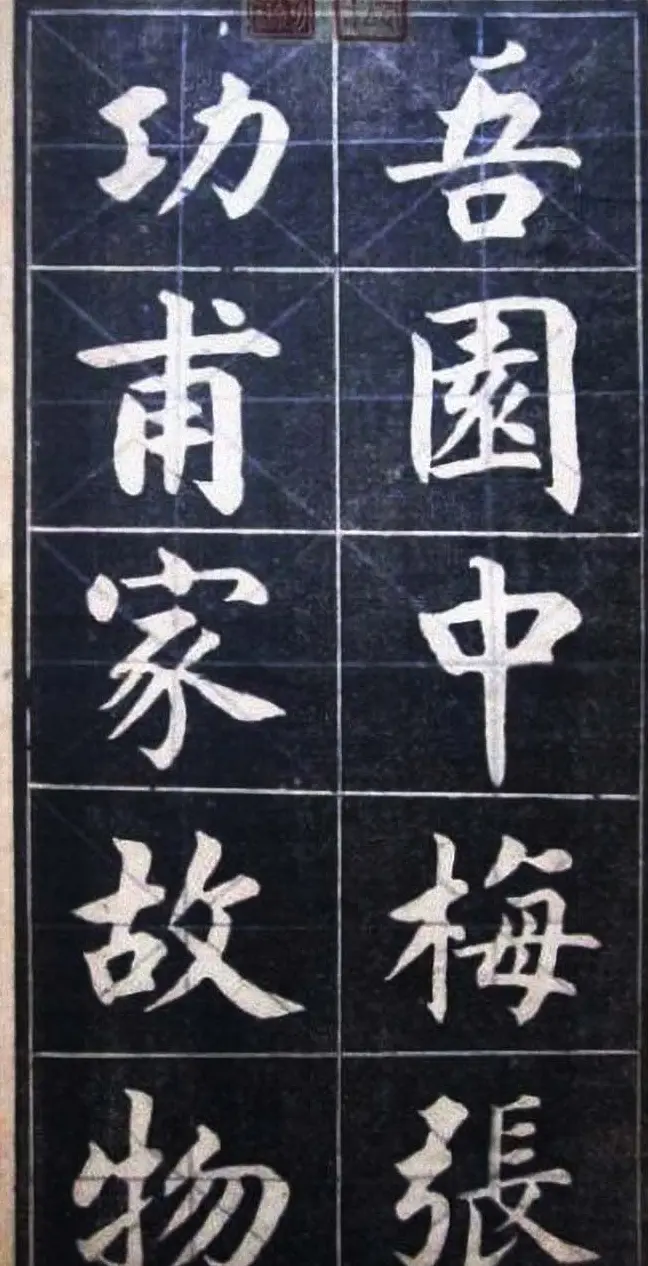 吾園中梅張
功甫家故物